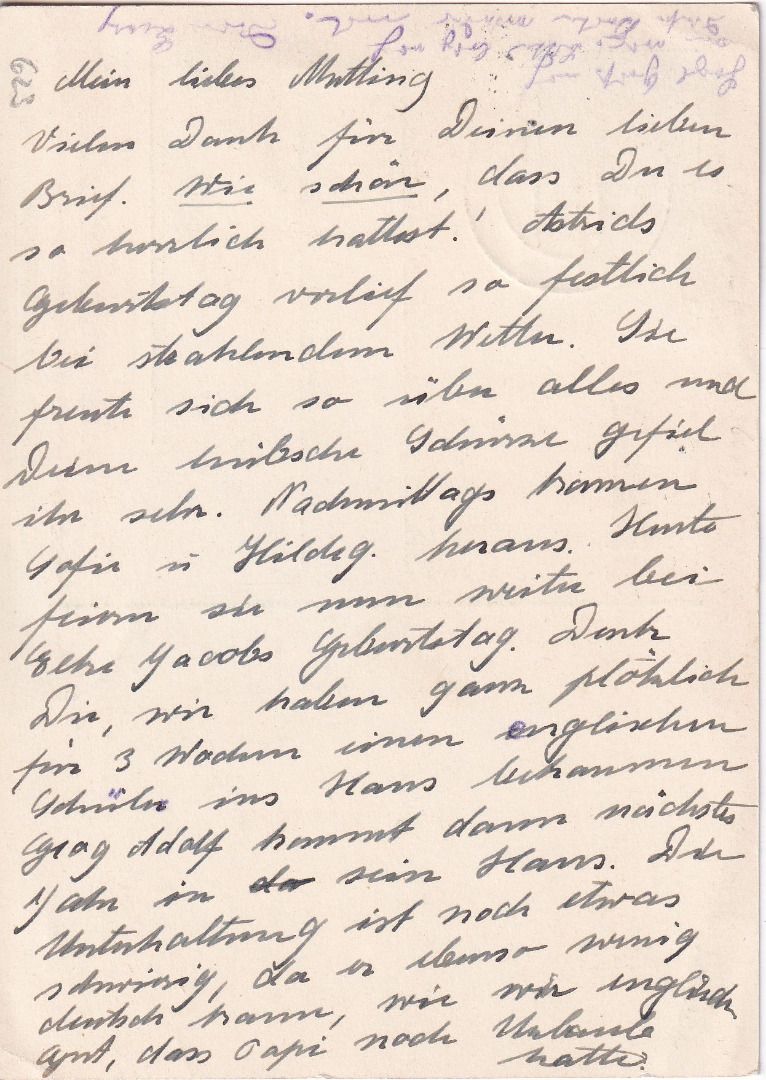 623
Mein liebes Mutting
Vielen Dank für Deinen lieben
Brief. Wie schön, dass Du es
so herrlich hattest! Astrids
Geburtstag verlief so festlich
bei strahlendem Wetter. Sie
freute sich so über alles und
Deine hübsche Schürze gefiel
ihr sehr. Nachmittags kamen
Sofie u Hildeg. heraus. Heute
feiern sie nun weiter bei
Elke Jacobs Geburtstag. Denk
Dir, wir haben ganz plötzlich
für 3 Wochen einen englischen
Schüler ins Haus bekommen
Georg Adolf kommt dann nächstes
Jahr in da sein Haus. Die
Unterhaltung ist noch etwas
schwierig, da er ebenso wenig
deutsch kann, wie wir englisch
Gut, dass Papi noch Urlaub
hatte.